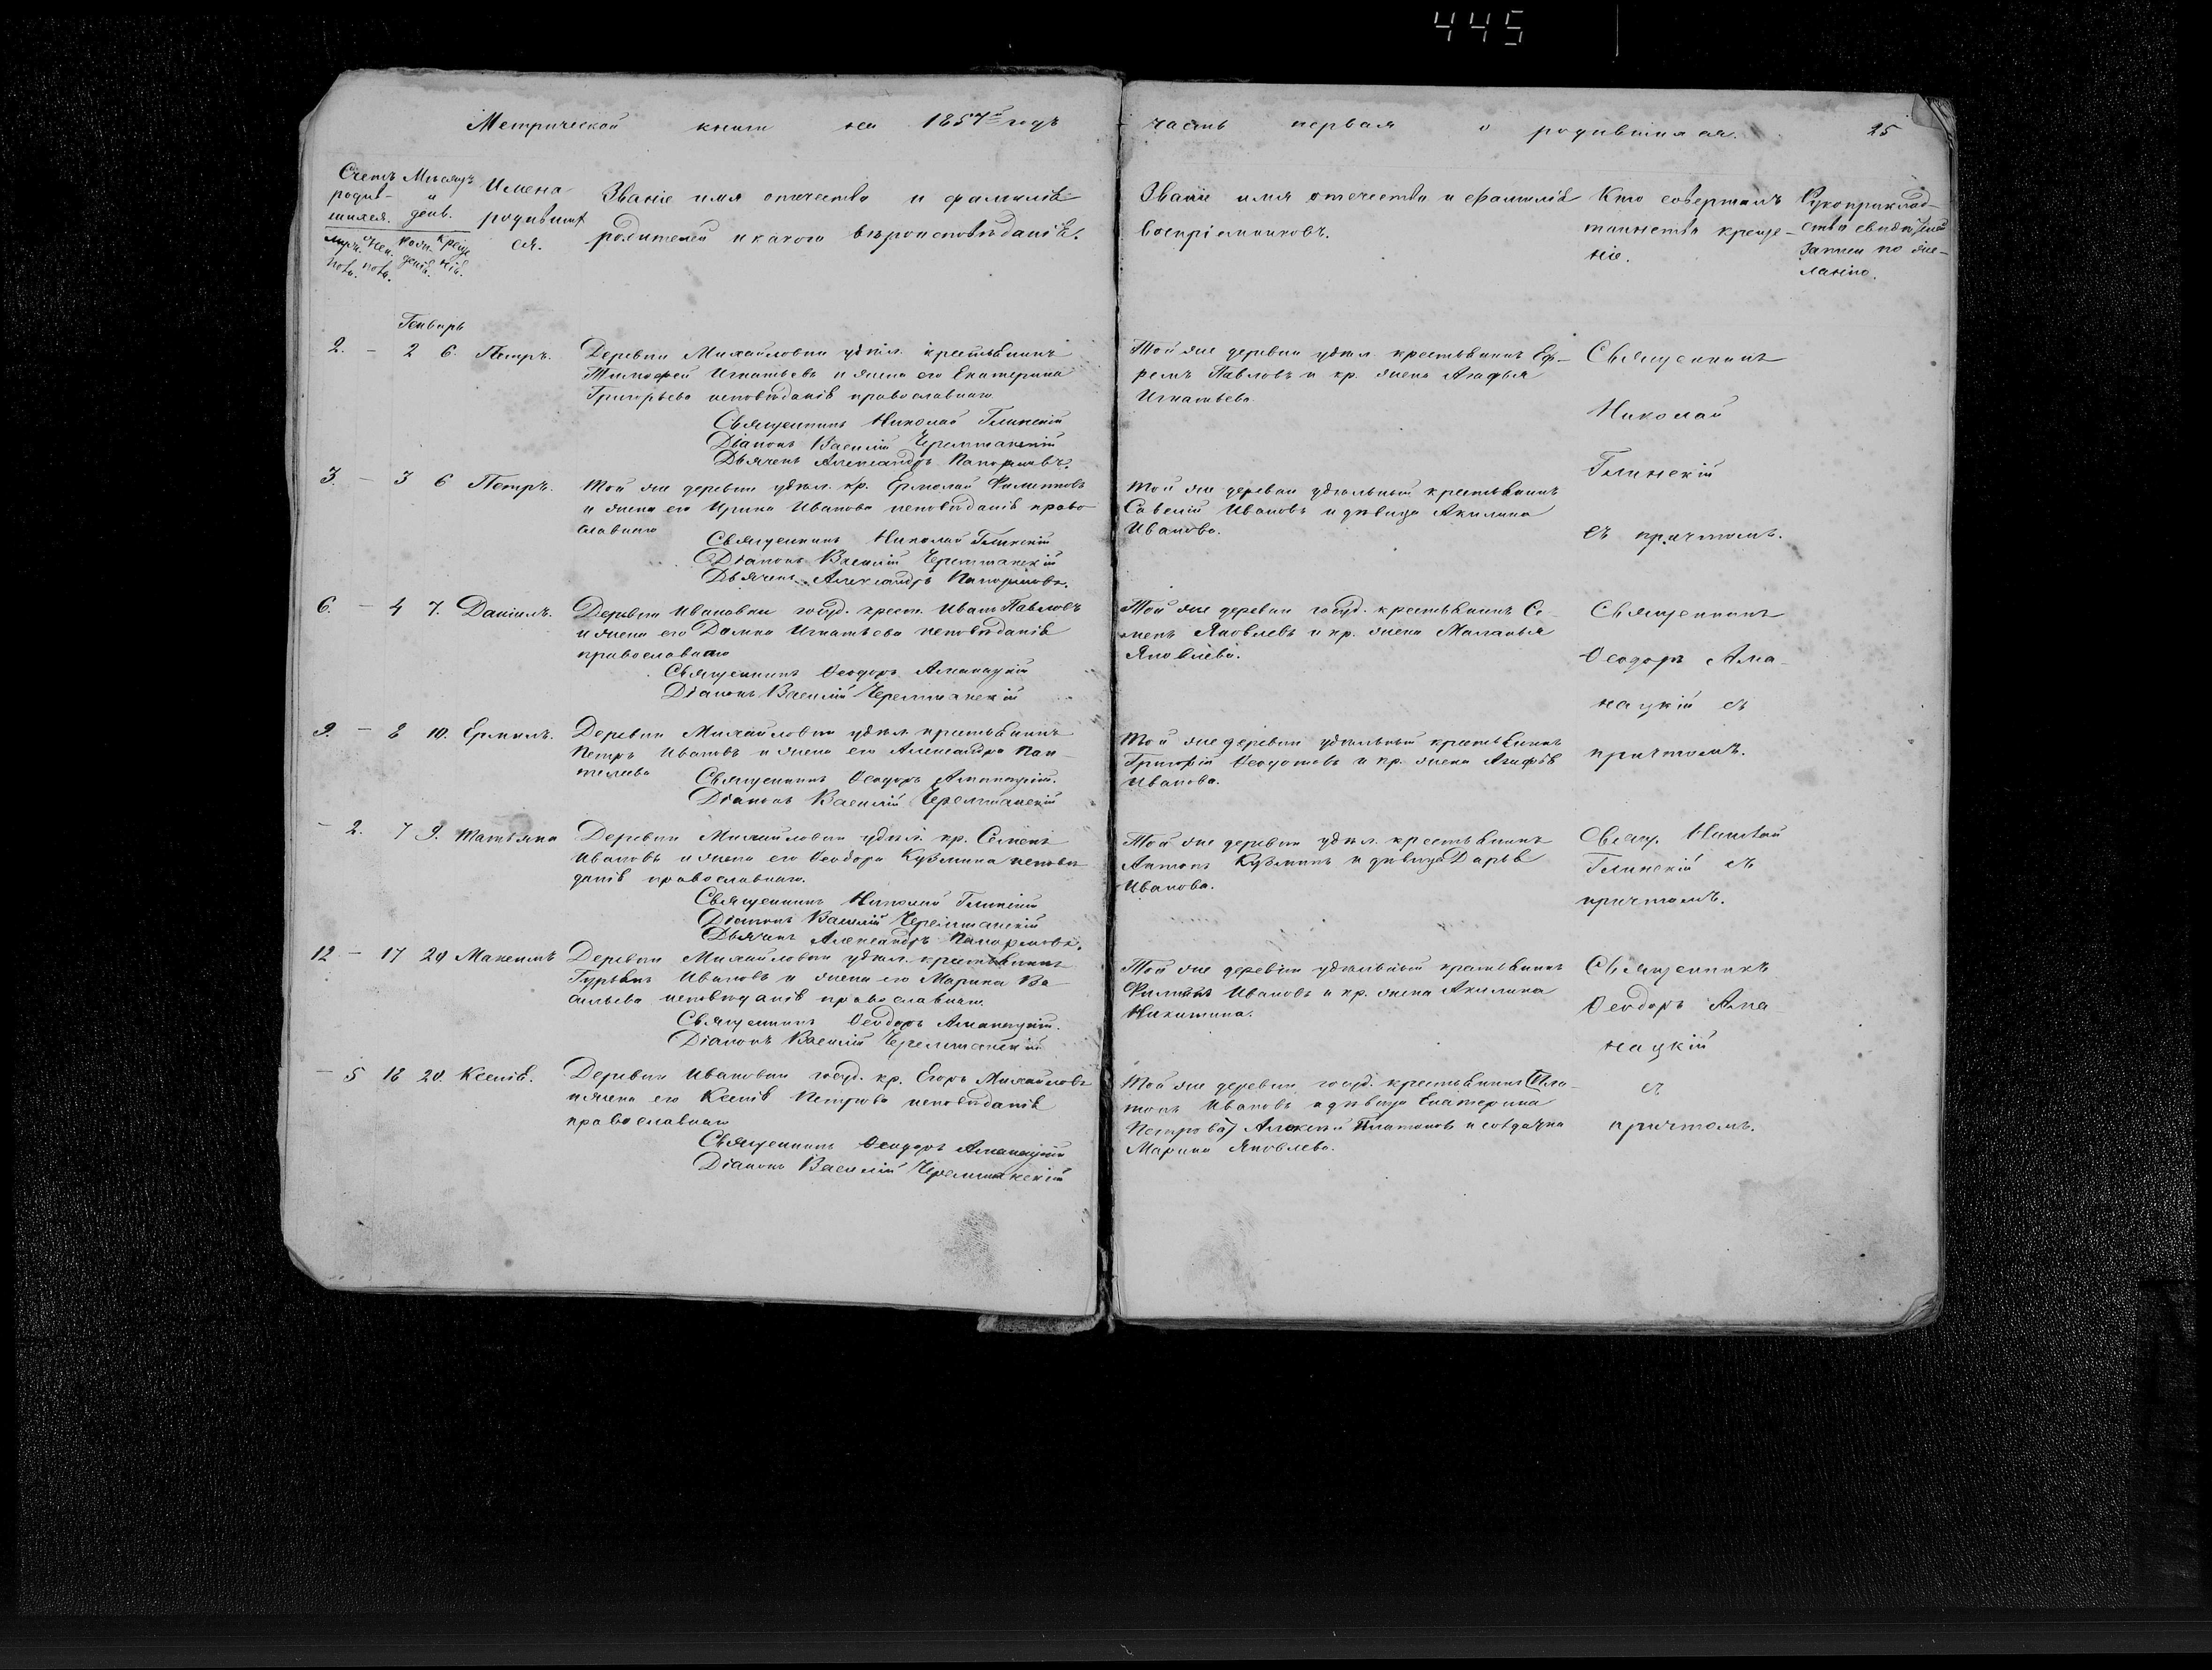 445
Метрической книги на 1857й годъ
часть первая о родившихся.
25
Счетъ родив-
шихся.
муже.
ска
пола.
женс.
пола.
Мѣсяцъ
и
день.
рожденія.
крещенія.
Имена
родивших
ся.
Званіе имя отечество и фамилія
родителей и какого вѣроисповѣданія.
Званіе имя отечество и фамилія
воспріемниковъ.
Кто совершалъ
таинство креще-
ніе.
Рукоприклад-
ство свидѣтелей
записи по же-
ланію.
Генварь
2. - 2 6. Петръ.
Деревни Михайловки удѣл. крестьянинъ
Тимофей Игнатьевъ и жена его Екатерина
Григорьева исповѣданія православнаго
Священникъ Николай Глинскій
Діаконъ Василій Черемшанскій
Дьячекъ Александръ
Той же деревни удѣл. крестьянинъ Еф-
ремъ Павловъ и кр. жена Агафья
Игнатьева.
Священникъ
Николай
Глинскій
съ причтомъ.
3. - 3 6 Петръ.
Той же деревни удѣл. кр. Ермолай Филиповъ
и жена его Ирина Иванова исповѣданія право
славнаго
Священникъ Николай Глинскій
Діаконъ Василій Черемшанскій
Дьячекъ Александръ
Той же деревни удѣльный крестьянинъ
Савелій Ивановъ и дѣвица Акилина
Иванова.
6. - 4 7. Даніилъ.
Деревни Ивановки госуд. крест. Иванъ Павловъ
и жена его Домна Игнатьева исповѣданія
православнаго
Священникъ Ѳеодоръ Аманацкій
Діаконъ Василій Черемшанскій
Той же деревни госуд. крестьянинъ Се-
менъ Яковлевъ и кр. жена Маланья
Яковлева.
Священникъ
Ѳеодоръ Ама-
нацкій съ
причтомъ.
9. - 8 10. Ермилъ.
Деревни Михайловки удѣл. крестьянинъ
Петръ Ивановъ и жена его Александра Пан-
телеева
Священникъ Ѳеодоръ Аманацкій.
Діаконъ Василій Черемшанскій
Той же деревни удѣльный крестьянинъ
Григорій Ѳедотовъ и кр. жена Агафья
Иванова.
- 2. 7 9. Татьяна
Деревни Михайловки удѣл. кр. Семенъ
Ивановъ и жена его Ѳеодора Кузмина исповѣ
данія православнаго.
Священникъ Николай Глинскій
Діаконъ Василій Черемшанскій
Дьячекъ Александръ
Той же деревни удѣл. крестьянинъ
Антонъ Кузминъ и дѣвица Дарья
Иванова.
Свящ. Николай
Глинскій съ
причтомъ.
12 - 17 20 Максимъ
Деревни Михайловки удѣл. крестьянинъ
Гурьянъ Ивановъ и жена его Марина Ва
сильева исповѣданія православнаго.
Священникъ Ѳеодоръ Аманацкій.
Діаконъ Василій Черемшанскій
Той же деревни удѣльный крестьянинъ
Филипъ Ивановъ и кр. жена Акилина
Никитина.
Священникъ
Ѳеодоръ Ама-
нацкій
съ
причтомъ.
- 5 18 20. Ксенія.
Деревни Ивановки госуд. кр. Егоръ Михайловъ
и жена его Ксенія Петрова исповѣданія
православнаго
Священникъ Ѳеодоръ Аманацкій
Діаконъ Василій Черемшанскій
Той же деревни госуд. крестьянинъ (Пла-
тонъ Ивановъ и дѣвица Екатерина
Петрова) Алексѣй Платоновъ и солдатка
Марина Яковлева.